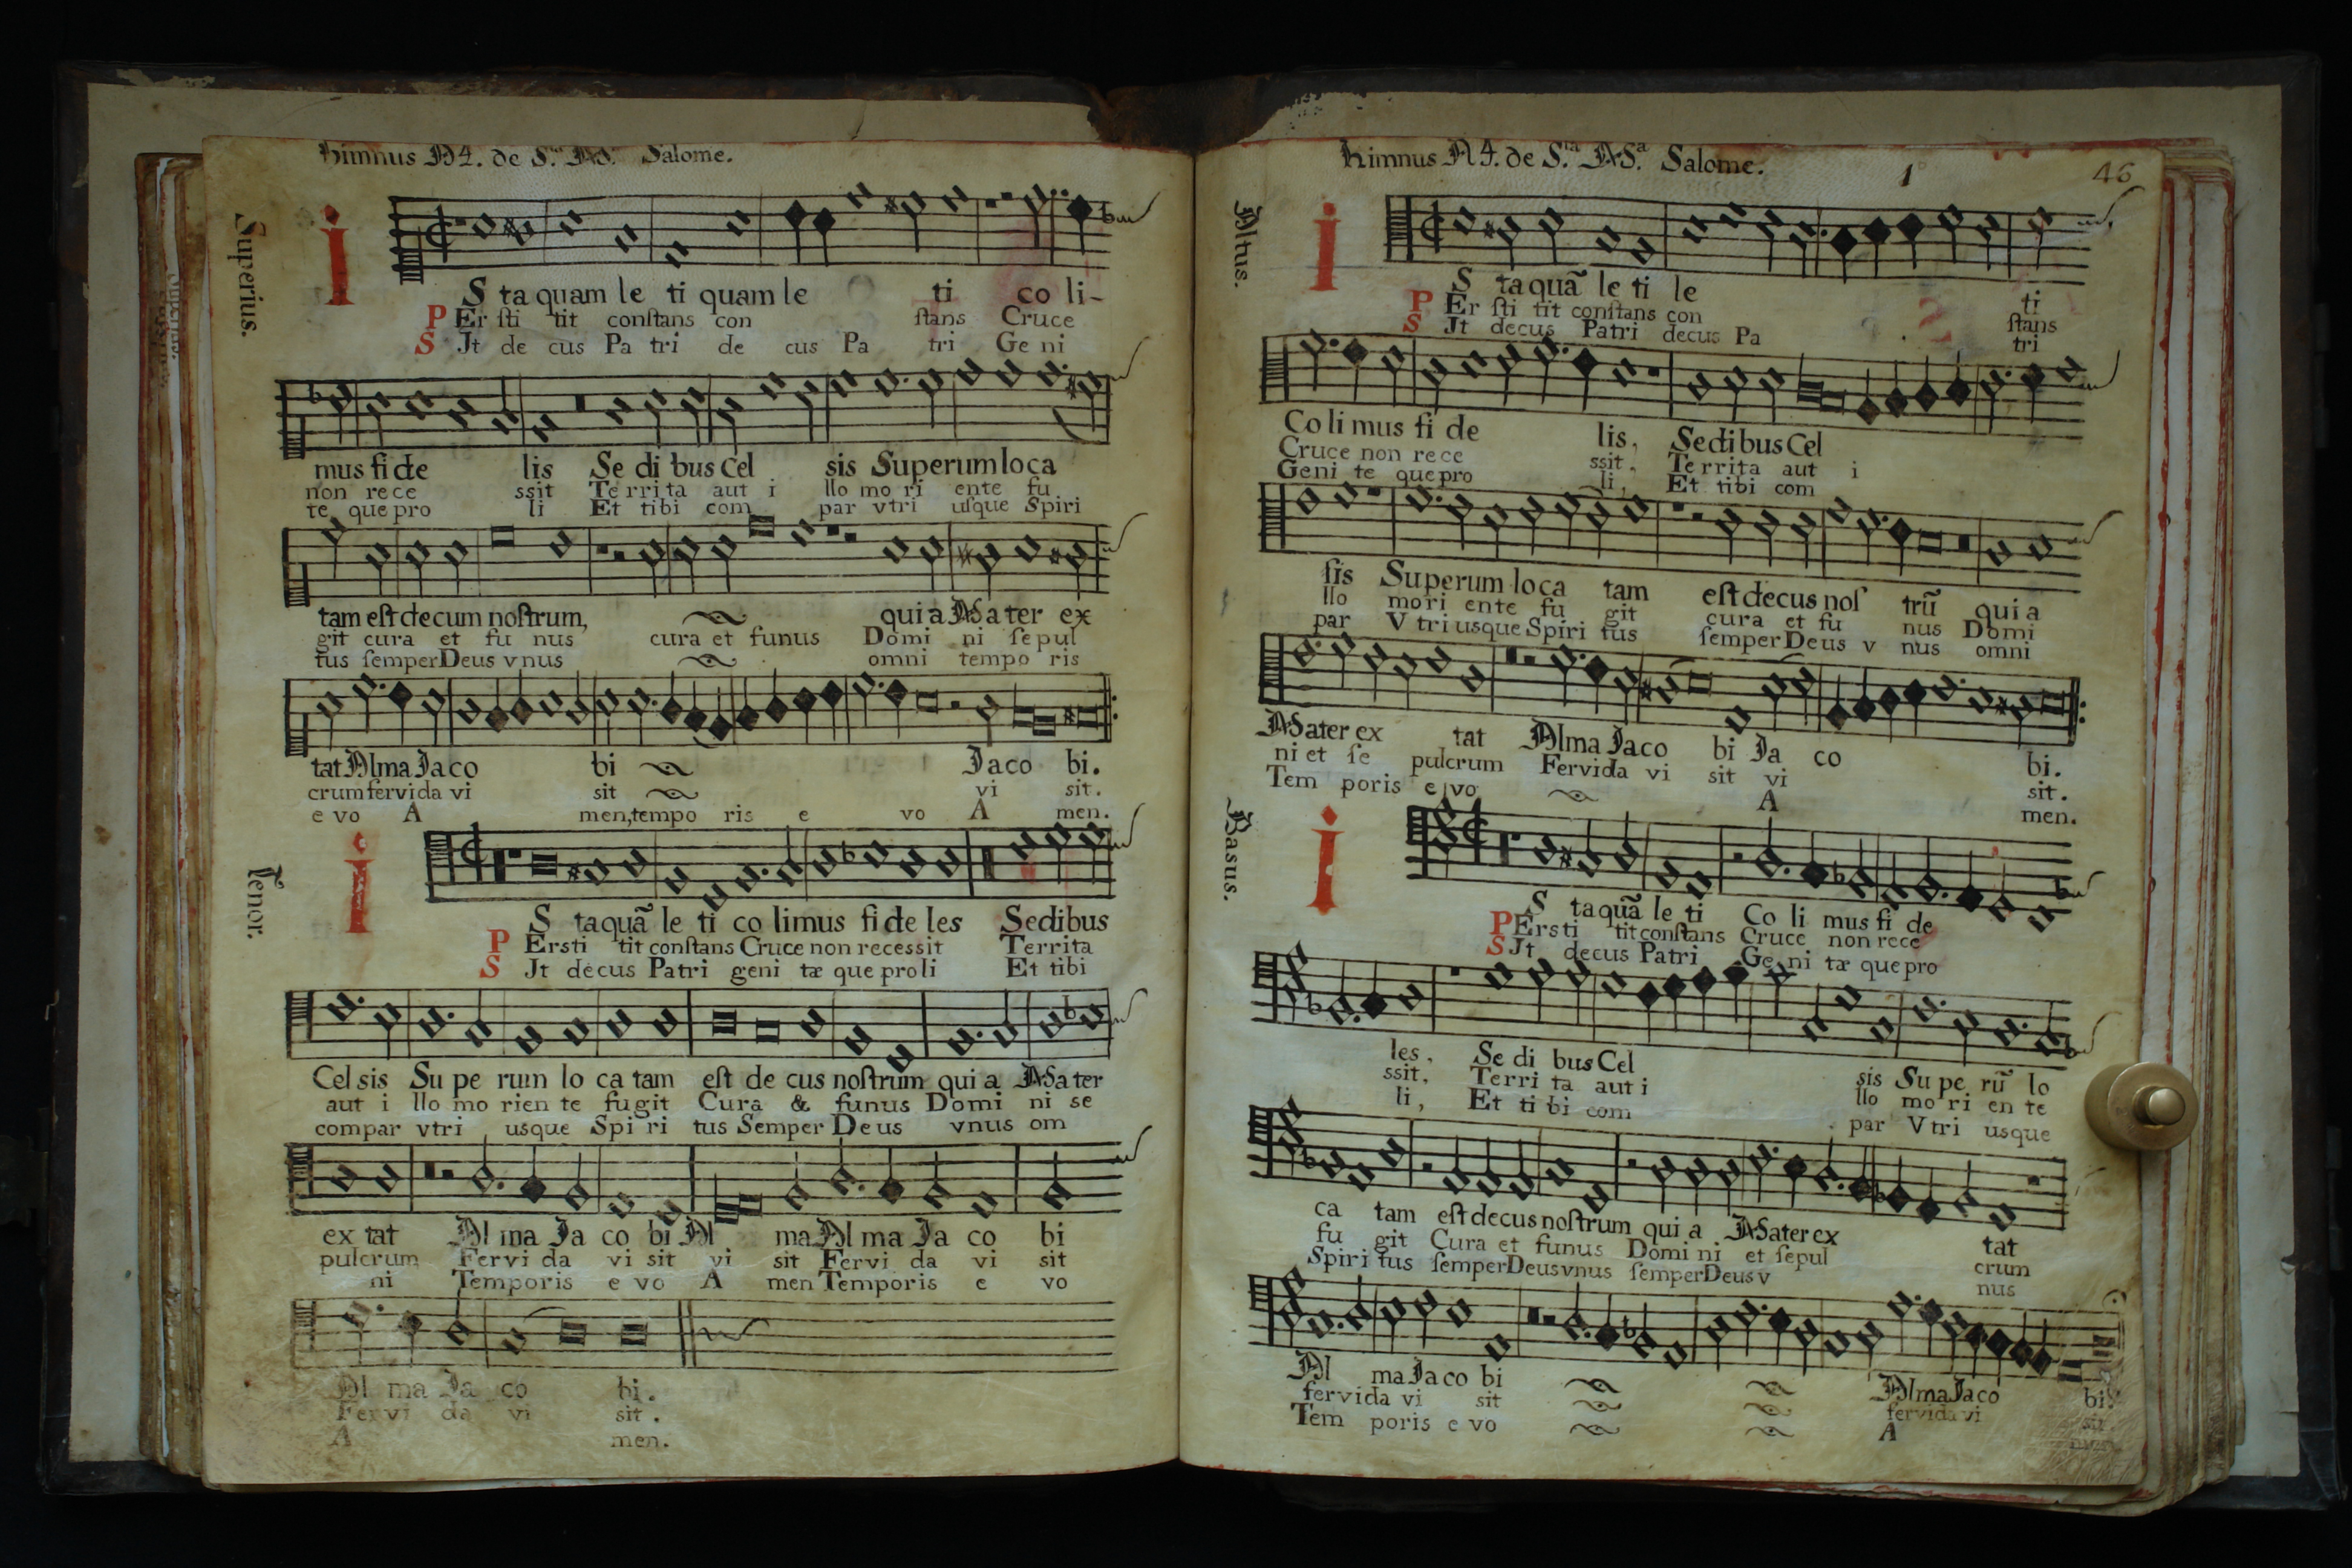 Himnus A 4. de S.ta M.a Salome.
Superius.
i
S ta quam le ti quam le ti co li-
P Er sti tit constans con stans Cruce
S Jt de cus Pa tri de cus Pa tri Ge ni
mus fi de lis Se di bus Cel sis Superum loca
non rece ssit Territa aut i llo mo ri ente fu
te que pro li Et tibi com par vtri usque Spiri
tam est decum nostrum, qui a Mater ex
git cura et fu nus cura et funus Domi ni sepul
tus semper Deus vnus omni tempo ris
tat Alma Jaco bi Jaco bi.
crum fervida vi sit vi sit.
e vo A men, tempo ris e vo A men.
Tenor.
i
S ta quã le ti co limus fi de les Sedibus
P Ersti tit constans Cruce non recessit Territa
S Jt decus Patri geni tæ que proli Et tibi
Cel sis Su pe rum lo ca tam est de cus nostrum qui a Mater
aut i llo mo rien te fugit Cura & funus Domi ni se
compar vtri usque Spi ri tus Semper Deus vnus om
ex tat Al ma Ja co bi Al ma Al ma Ja co bi
pulcrum Fervi da vi sit vi sit Fervi da vi sit
ni Temporis e vo A men Temporis e vo
Al ma Ja co bi.
Fervi da vi sit.
A men.
Himnus A 4. de S.ta M.a Salome.
1
46
Altus.
i
S ta quã le ti le ti
P Er sti tit constans con stans
S Jt decus Patri decus Pa tri
Co li mus fi de lis, Sedibus Cel
Cruce non rece ssit. Territa aut i
Geni te que pro li, Et tibi com
sis Superum loca tam est decus nos trũ qui a
llo mori ente fu git cura et fu nus Domi
par V tri usque Spiri tus semper Deus v nus omni
Mater ex tat Alma Jaco bi Ja co bi.
ni et se pulcrum Fervida vi sit vi sit.
Tem poris e vo A men.
Basus.
i
S ta quã le ti Co li mus fi de
P Ersti tit constans Cruce non rece
S Jt decus Patri Ge ni tæ que pro
les, Se di bus Cel sis Su pe rũ lo
ssit, Terri ta aut i llo mo ri en te
li, Et ti bi com par V tri usque
ca tam est decus nostrum qui a Mater ex tat
fu git Cura et funus Domi ni et sepul crum
Spiri tus semper Deus vnus semper Deus v nus
Al ma Jaco bi Alma Jaco bi.
fervida vi sit fervida vi sit
Tem poris e vo A